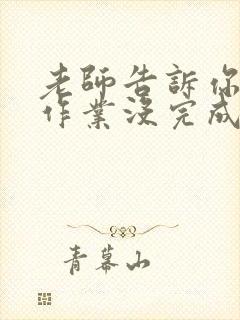 老師告訴你
作業沒完成
青幕山